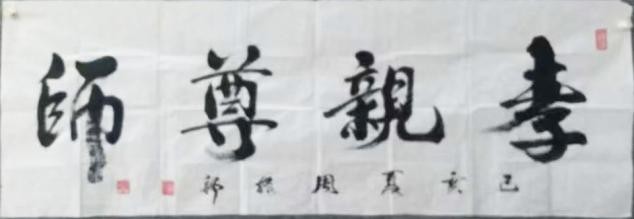 孝親尊師
己亥夏周振